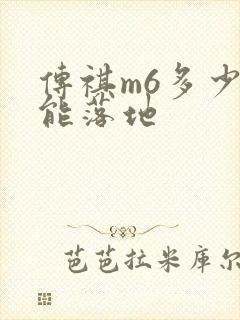 傳祺m6多少
能落地
芭芭拉米库尔